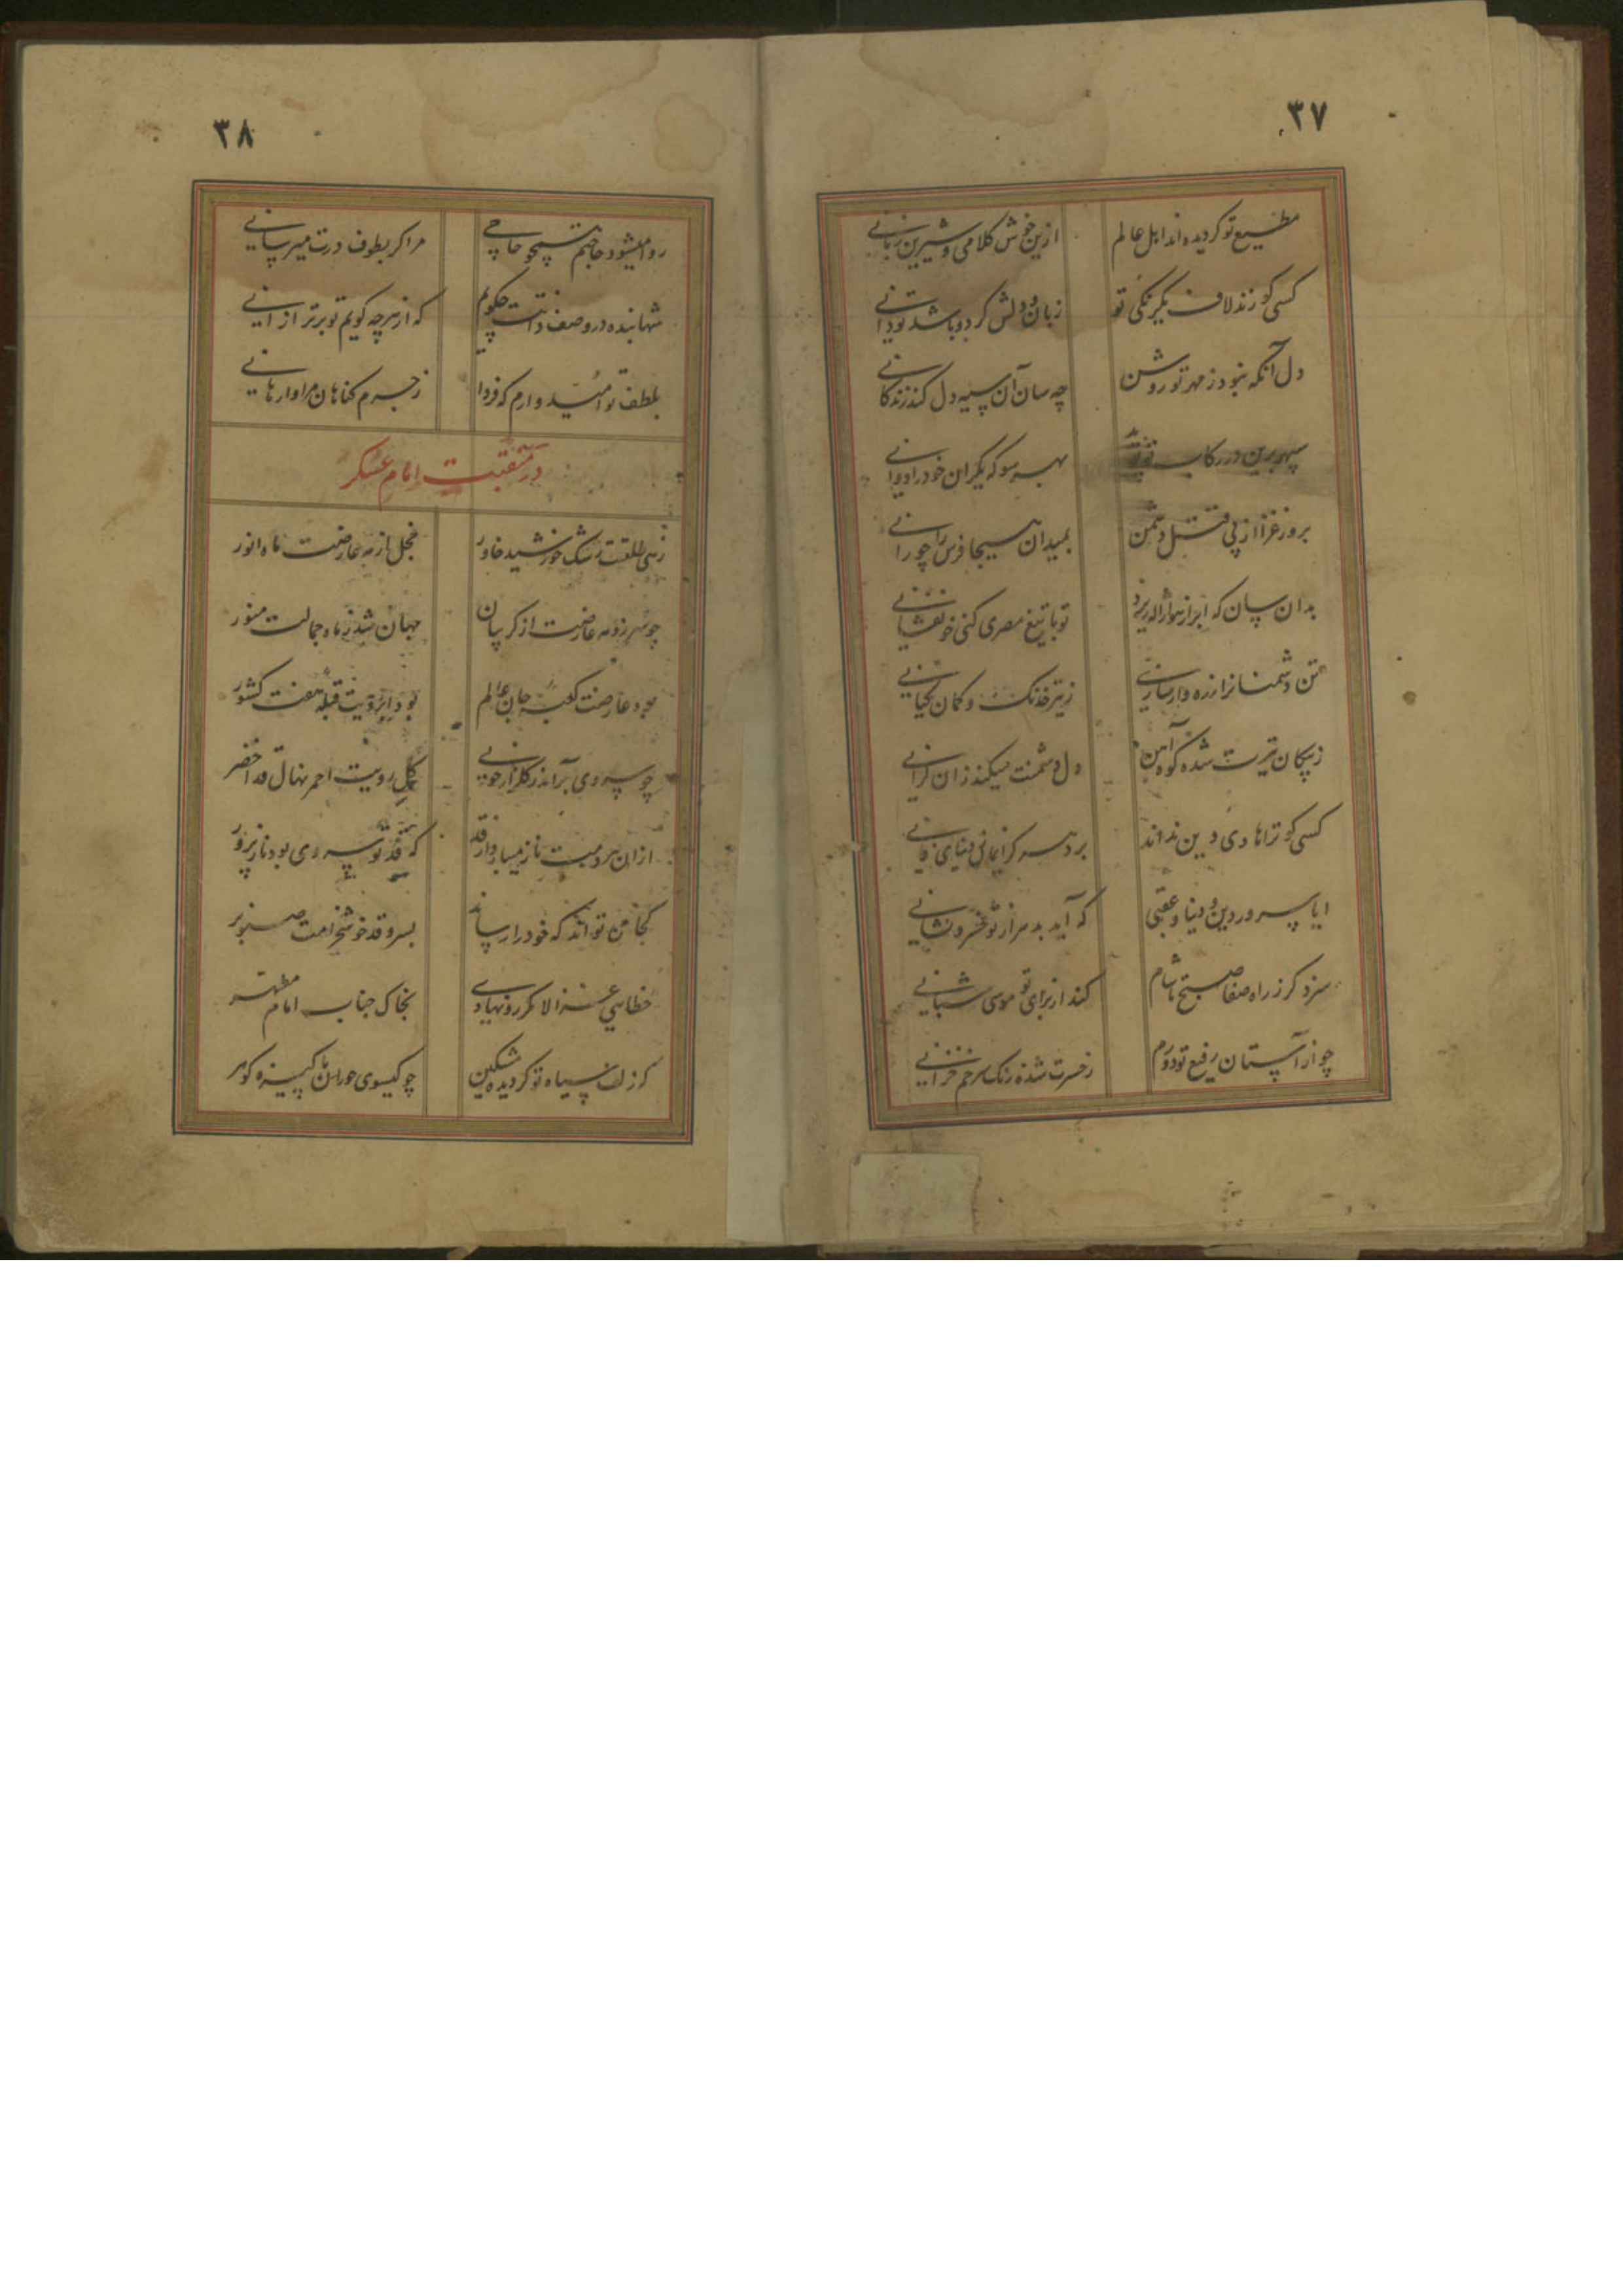 ۳۷
مطیع تو کردیده اند اهل عالم ازین خوش کلامی و شیرین زبانی
کسی کو زند لاف یکرنکی تو زبان و دلش کر دو باشد تو دانی
دل آنکه نبود ز مهر تو روشن چه سان آن سیه دل کند زندکانی
سپهر برین در رکاب بهر سو که یکران خود را دوانی
بروز غزا از پی قتل دشمن بمیدان هیجا فرس را چو رانی
بدان سان که ابر از هوا ژاله ریزد تو با تیغ مصری کنی خونفشانی
تن دشمنانرا زره وار سازی ز تیر خدنک و کمان کیانی
ز پیکان تیرت شده کوه آهن دل دشمنت میکند زان کرانی
کسی کو ترا هادی دین نداند برد سر کرانی
ایا سرور دین و دنیا و عقبی که آید بدهر از تو خسرو نشانی
سزد کر ز راه صفا صبح تا شام کند از برای تو موسی شبانی
چو از آستان رفیع تو دورم ز حسرت شده رنک سرخم خزانی
۳۸
روا میشود حاجتم همچو حاجی مرا کر بطوف درت میرسانی
شها بنده در وصف ذاتت چکویم که از هرچه کویم تو برتر از آنی
بلطف تو امّید دارم که فردا ز جرم کناهان مرا وارهانی
در منقبت امام عسکر
زهی طلعتت رشک خورشید خاور خجل از مه عارضت ماه انور
چو سر زد مه عارضت از کریبان جهان شد ز ماه جمالت منور
بود عارضت کعبه جان عالم بود ابرویت قبله هفت کشور
چو سروی برآمد ز کلزار خوبی کل رویت احمر نهال قد اخضر
ازان سرو میست ناز میبارد از قد که قد تو سروی بود نازپرور
کجا من تواند که خود را رساند بسرو قد خوشخرامت صنوبر
خطایی غزالا مکر رو نهادی بخاک جناب امام مطهر
که زلف سیاه تو کردیده مشکین چو کیسوی حوران پاکیزه کوهر